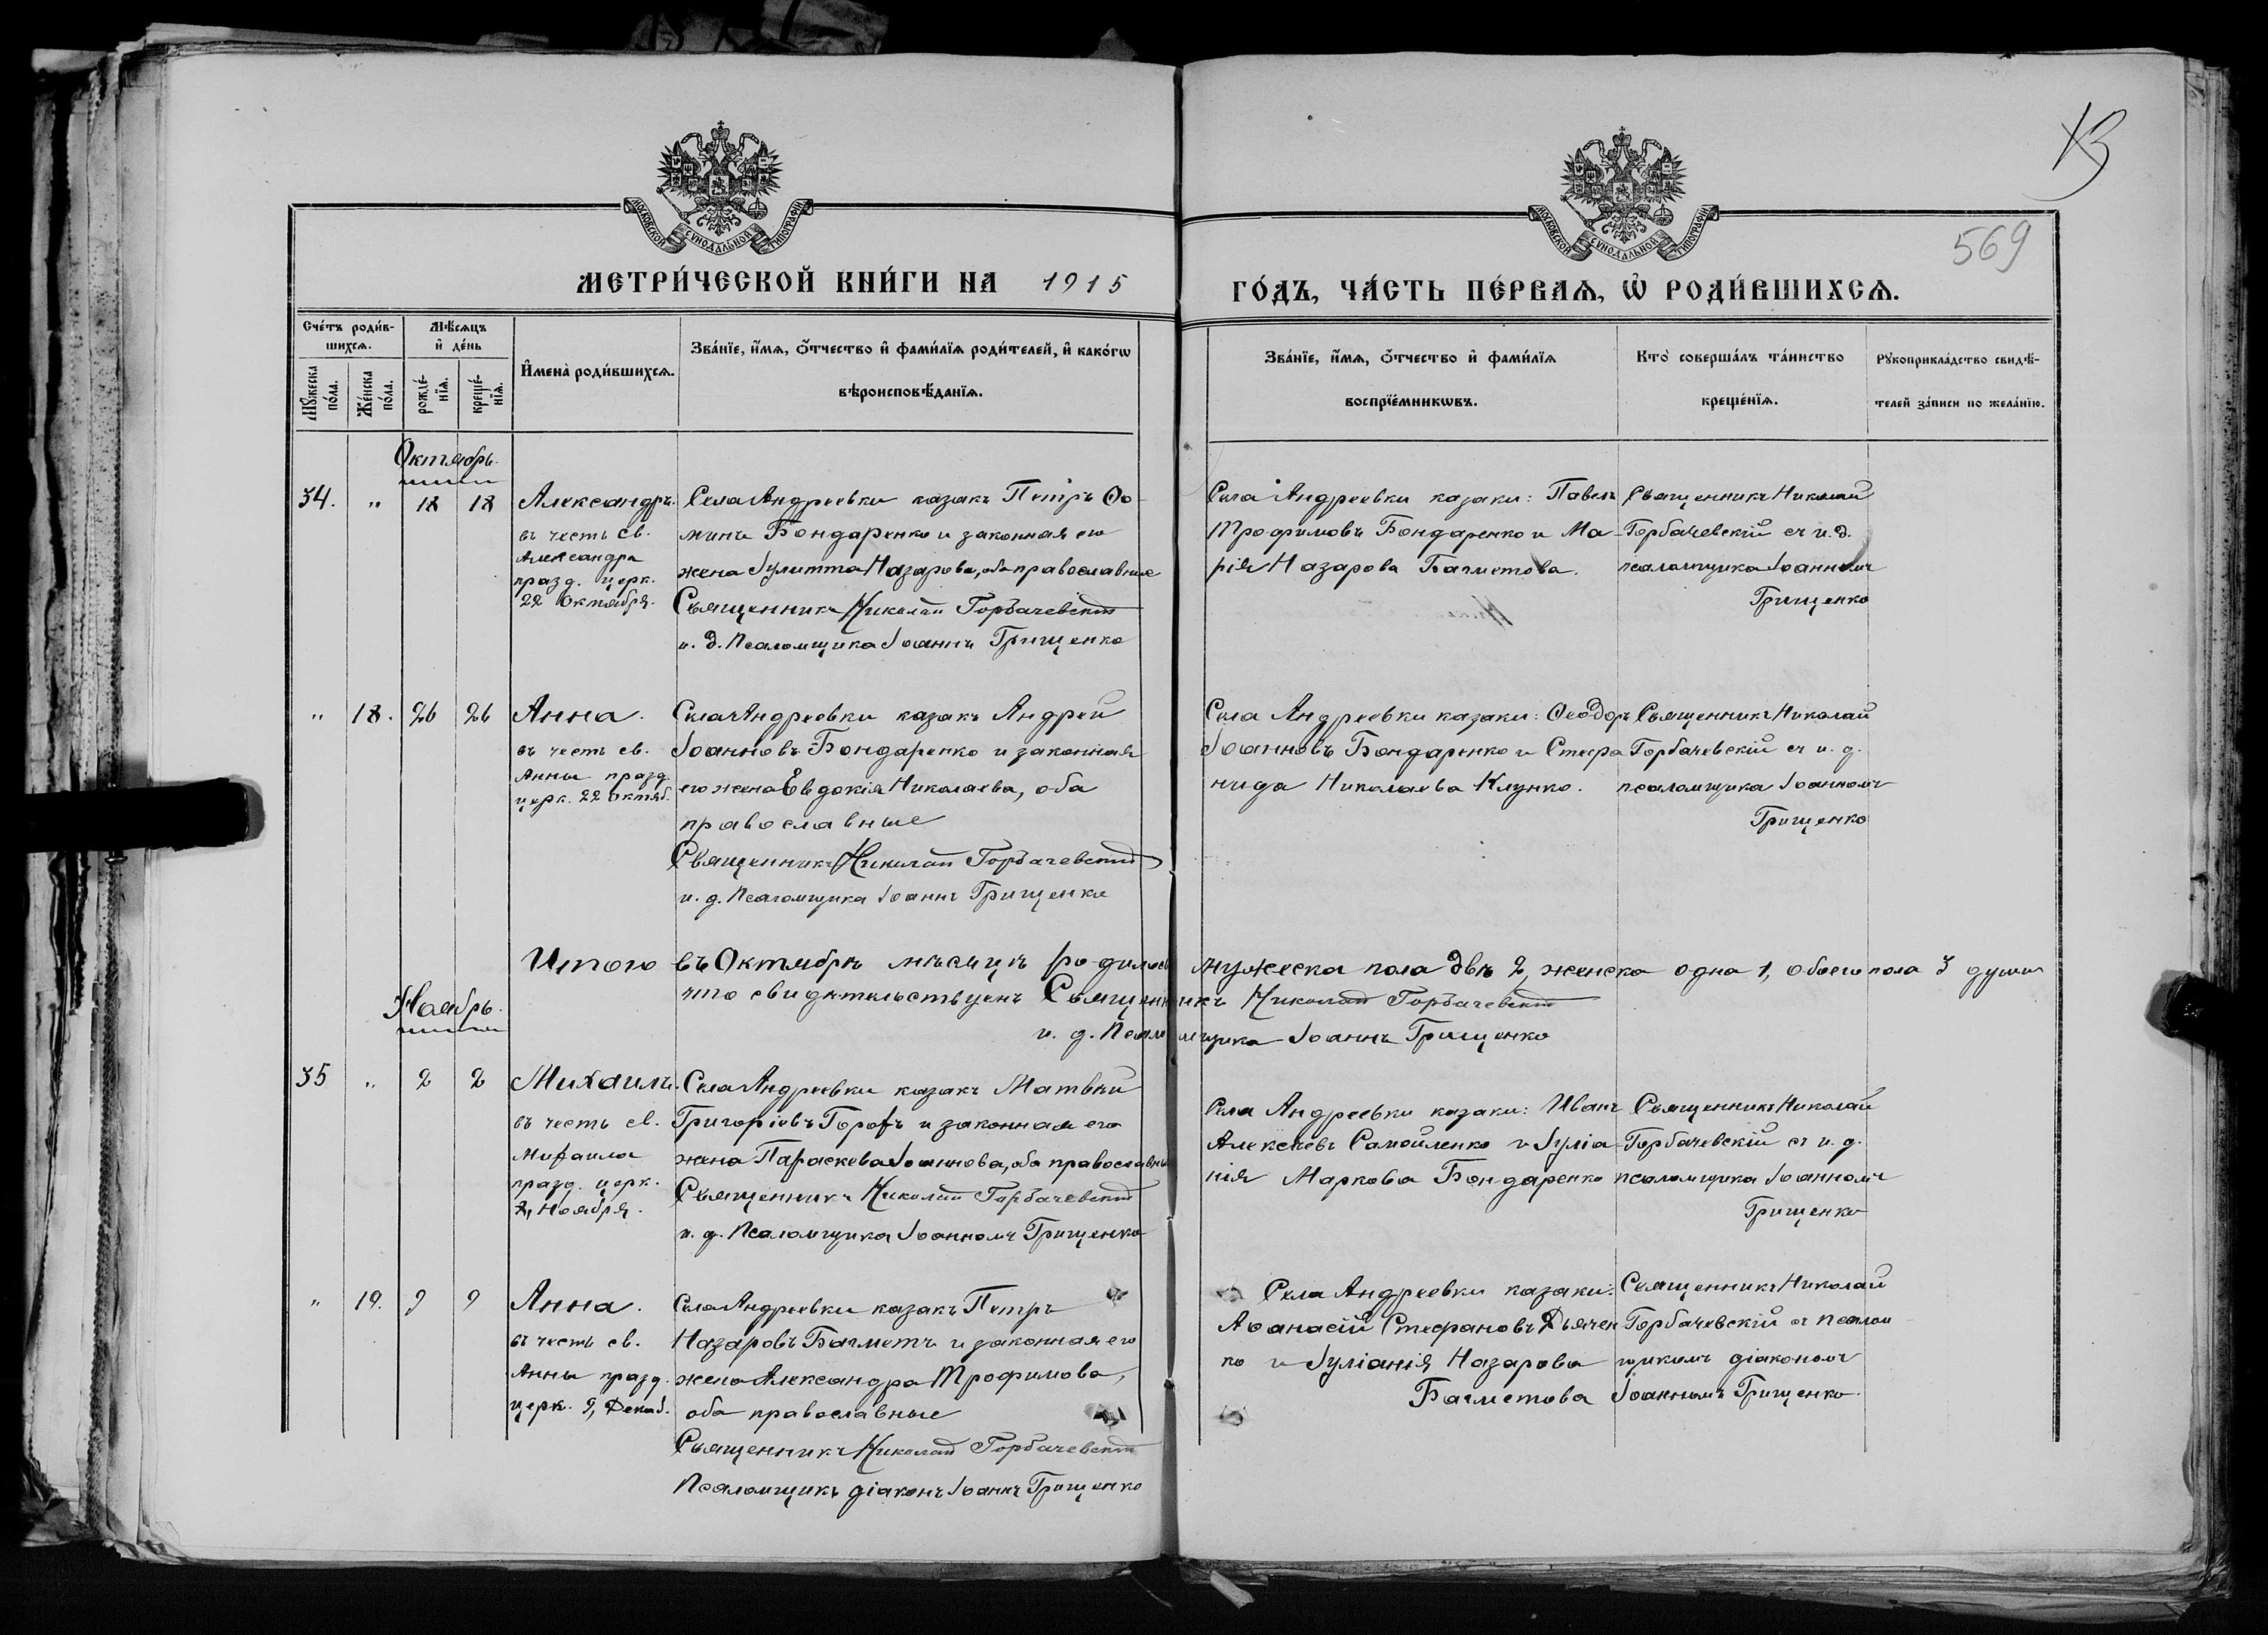 13
569
МОСКОВСКОЙ СѴНОДАЛЬНОЙ ТИПОГРАФІИ
МОСКОВСКОЙ СѴНОДАЛЬНОЙ ТИПОГРАФІИ
МЕТРИ́ЧЕСКОЙ КНИ́ГИ НА 1915
ГО́ДЪ, ЧА́СТЬ ПЕ́РВАѦ, Ѡ҆ РОДИ́ВШИХСѦ.
Сче́тъ роди́в-
шихсѧ.
Мѣ́сѧцъ
и҆ де́нь
Мꙋ́жеска по́ла.
Же́нска по́ла.
рожде́-
нїѧ.
креще́-
нїѧ.
И҆мена̀ роди́вшихсѧ.
Зва́нїе, и҆́мѧ, ѻ҆́тчество и҆ фами́лїѧ роди́телей, и҆ како́гѡ
вѣроисповѣ́данїѧ.
Зва́нїе, и҆́мѧ, ѻ҆́тчество и҆ фами́лїѧ
воспрїе́мникѡвъ.
Кто̀ соверша́лъ та́инство
креще́нїѧ.
Рꙋкоприкла́дство свидѣ́-
телей за́писи по жела́нїю.
Октябрь.
34. " 18 18
Александръ.
въ честь св.
Александра
празд. церк.
22 Октября.
Села Андреевки казакъ Петръ Ѳо-
минъ Бондаренко и законная его
жена Іулитта Назарова, оба православные
Священникъ Николай Горбачевскій
и. д. Псаломщика Іоаннъ Грищенко
Села Андреевки казаки: Павелъ
Трофимовъ Бондаренко и Ма-
рія Назарова Багметова.
Священникъ Николай
Горбачевскій съ и. д.
псаломщика Іоанномъ
Грищенко
" 18. 26 26
Анна.
въ честь св.
Анны празд.
церк. 22 Октяб.
Села Андреевки казакъ Андрей
Іоанновъ Бондаренко и законная
его жена Евдокія Николаева, оба
православные
Священникъ Николай Горбачевскій
и. д. Псаломщика Іоаннъ Грищенко
Села Андреевки казаки: Ѳеодоръ
Іоанновъ Бондаренко и Стефа
нида Николаева Клунко.
Священникъ Николай
Горбачевскій съ и. д.
псаломщика Іоанномъ
Грищенко
Итого въ Октябрѣ мѣсяцѣ родилось мужеска пола двѣ 2, женска одна 1, обоего пола 3 души
что свидѣтельствуемъ Священникъ Николай Горбачевскій
и. д. Псаломщика Іоаннъ Грищенко
Ноябрь.
35 " 2 2
Михаилъ.
въ честь св.
Михаила
празд. церк.
8, Ноября.
Села Андреевки казакъ Матвѣй
Григоріевъ Горохъ и законная его
жена Параскева Іоаннова, оба православные
Священникъ Николай Горбачевскій
и. д. Псаломщика Іоанномъ Грищенко
Села Андреевки казаки: Иванъ
Алексѣевъ Самойленко и Іуліа-
нія Маркова Бондаренко
Священникъ Николай
Горбачевскій съ и. д.
псаломщика Іоанномъ
Грищенко
" 19. 9 9
Анна.
въ честь св.
Анны празд.
церк. 9, Декаб.
Села Андреевки казакъ Петръ
Назаровъ Багметъ и законная его
жена Александра Трофимова,
оба православные
Священникъ Николай Горбачевскій
Псаломщикъ діаконъ Іоаннъ Грищенко
Села Андреевки казаки:
Аѳанасій Стефановъ Дьячен
ко и Іуліанія Назарова
Багметова
Священникъ Николай
Горбачевскій съ псалом-
щикомъ діакономъ
Іоанномъ Грищенко.